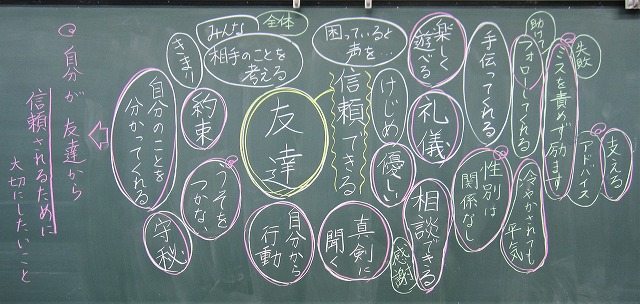 支える
アドバイス
失敗
ミスを責めず励ます
助けて
フォローしてくれる
冷やかされても
平気
手伝ってくれる
性別は
関係なし
楽しく
遊べる
礼儀
相談できる
感謝
困っていると
声を…
けじめ
優しい
信頼できる
真剣に
聞く
全体
みんな
相手のことを
考える
友達
自分から
行動
きまり
約束
うそを
つかない
守秘
自分のことを
分かってくれる
自分が友達から
信頼されるために
大切にしたいこと